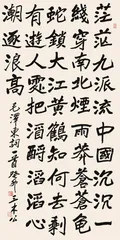 茫茫九派流中國沉沉一
線穿南北煙雨莽蒼蒼龜
蛇鎖大江黃鶴知何去剩
有遊人處把酒酹滔滔心
潮逐浪高
毛澤東詞